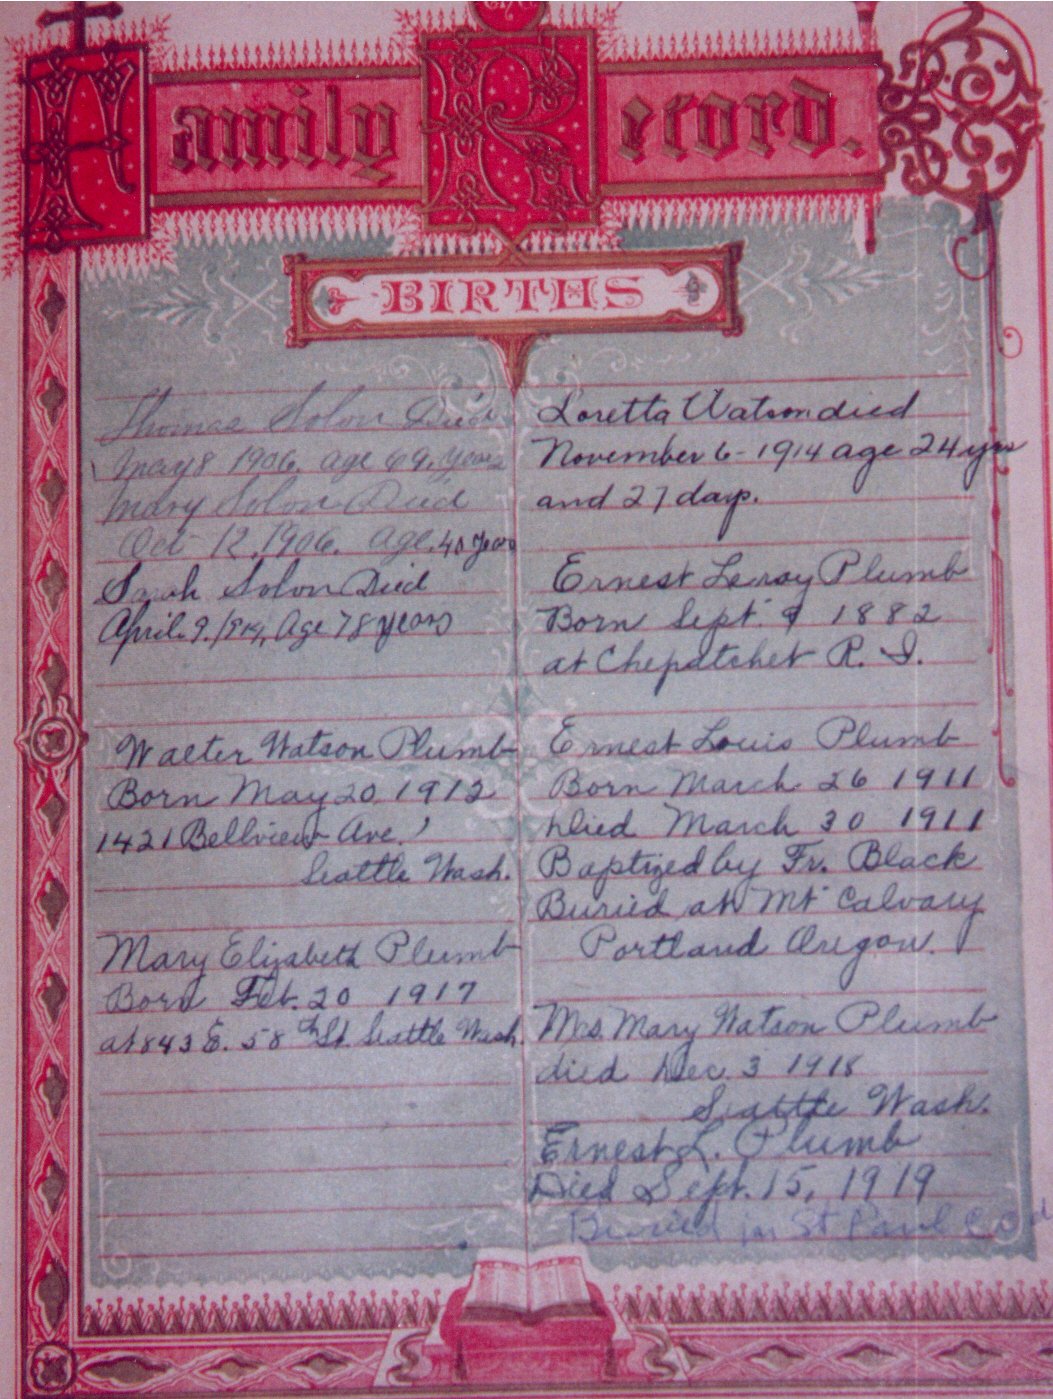 Family Record.
BIRTHS
Thomas Solon Died
May 8 1906. age 69. Years
Mary Solon Died
Oct 12, 1906. age. 40 Years
Sarah Solon Died
April 9. 1914, Age 78 years
Walter Watson Plumb
Born May 20, 1912
1421 Bellview Ave.
Seattle Wash.
Mary Elizabeth Plumb
Born Feb. 20 1917
at 843 E. 58th St. Seattle Wash.
Loretta Watson died
November 6 - 1914 age 24 yrs
and 27 days.
Ernest Leroy Plumb
Born Sept. 9 1882
at Chepatchet R. I.
Ernest Louis Plumb
Born March 26 1911
Died March 30 1911
Baptized by Fr. Black
Buried at Mt Calvary
Portland Oregon.
Mrs. Mary Watson Plumb
died Dec. 3 1918
Seattle Wash.
Ernest L. Plumb
Died Sept. 15, 1919
Buried in St Paul